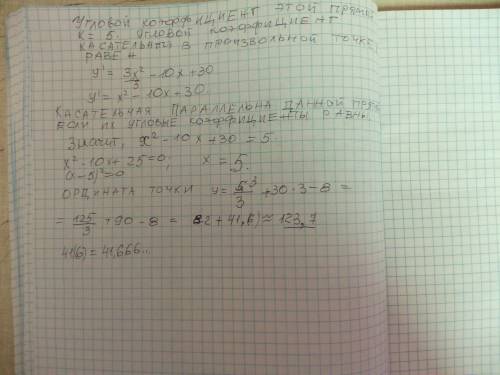 УГЛОВОЙ КОЭФФИЦИЕНТ ЭТОЙ ПРЯМОЙ
K = 5. УГЛОВОЙ КОЭФФИЦИЕНТ
КАСАТЕЛЬНОЙ В ПРОИЗВОЛЬНОЙ ТОЧКЕ
РАВЕН
y' = 3x²/3 - 10x + 30
y' = x² - 10x + 30.
КАСАТЕЛЬНАЯ ПАРАЛЛЕЛЬНА ДАННОЙ ПРЯМОЙ
ЕСЛИ ИХ УГЛОВЫЕ КОЭФФИЦИЕНТЫ РАВНЫ.
Значит, x² - 10x + 30 = 5.
x² - 10x + 25 = 0; x = 5.
(x - 5)² = 0
ОРДИНАТА ТОЧКИ y = 5³/3 + 30 · 3 - 8 =
= 125/3 + 90 - 8 = 82 + 41,(6) ≈ 123,7
41(6) = 41,666...